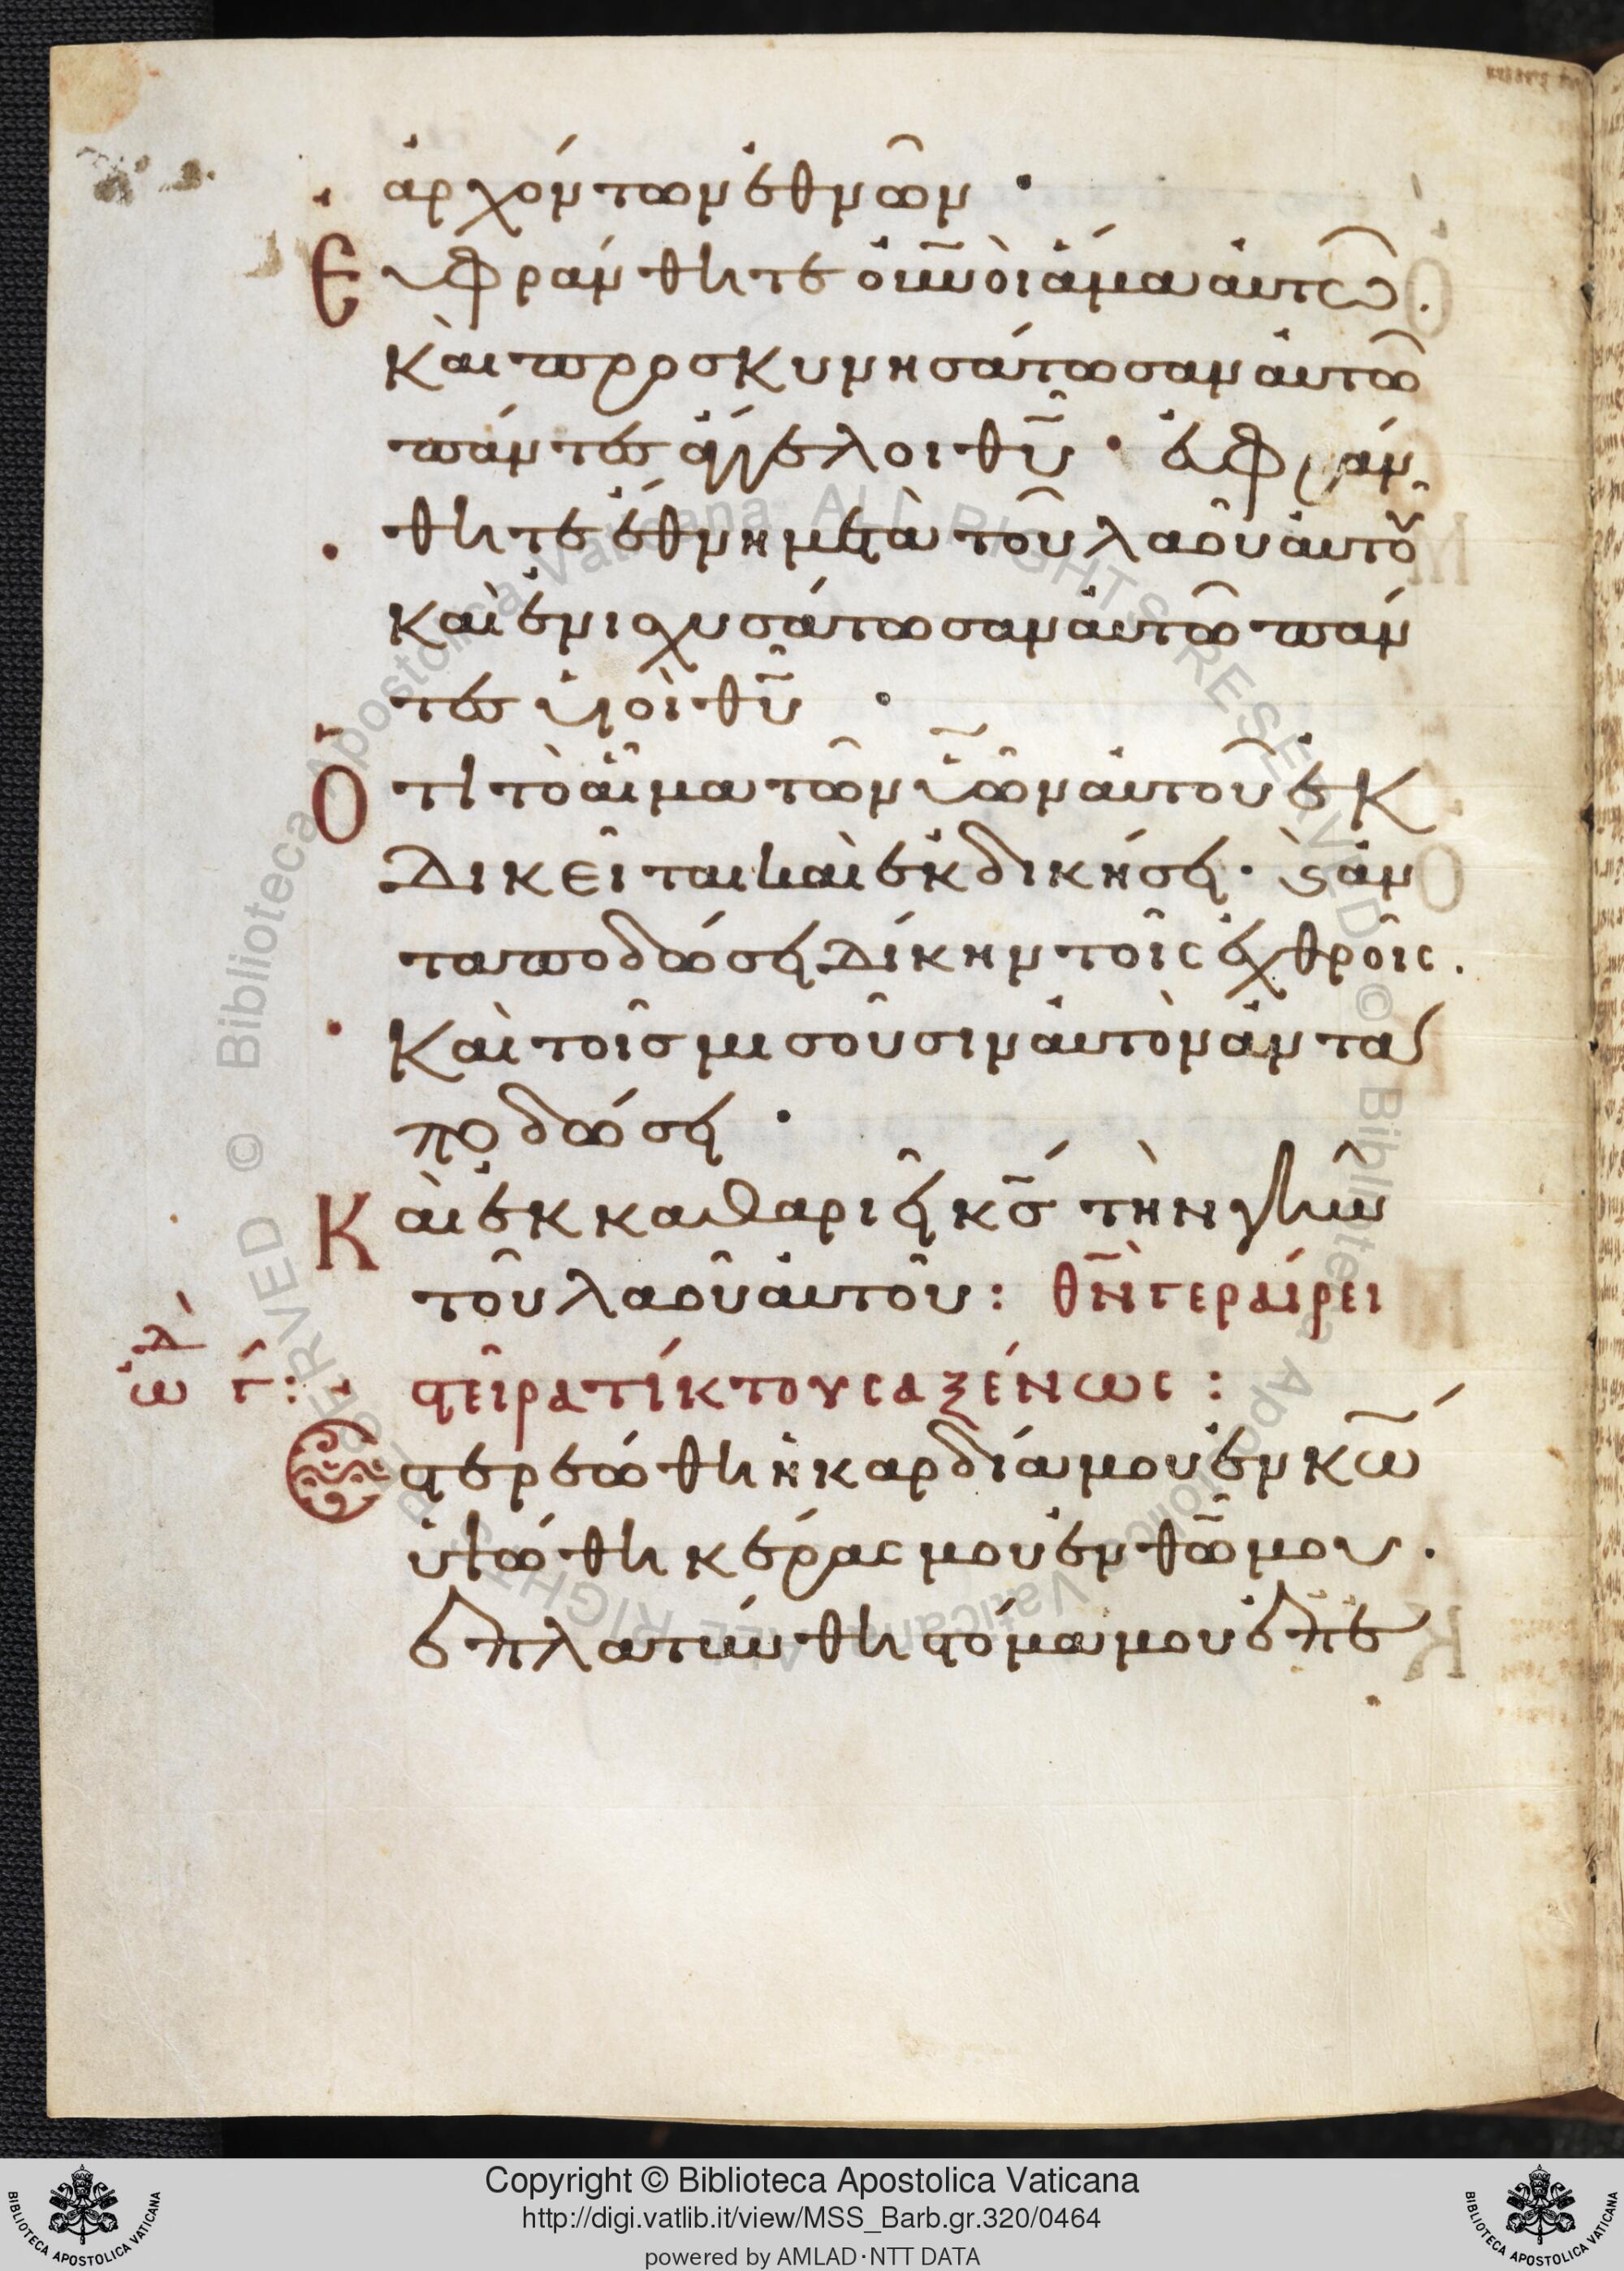 ἀρχόντων ἐθνῶν ·
Εὐφράνθητε οὐ̅νοὶ ἅμα αὐτῶ.
καὶ προσκυνησάτωσαν αὐτῶ
πάντες ἄγγελοι θ̅υ̅ · εὐφράν
θητε ἔθνη μετὰ τοῦ λαοῦ αὐτοῦ
καὶ ἐνισχυσάτωσαν αὐτῶ πάν
τες υἱοὶ θ̅υ̅ ·
Ὅτι τὸ αἷμα τῶν υ̅ῶν αὐτοῦ ἐκ
δικεῖται καὶ ἐκδικήσει · ϗ ἀν
ταποδώσει δίκην τοῖς ἐχθροῖς.
Καὶ τοῖς μισοῦσιν αὐτὸν ἀντα
ποδώσει ·
Καὶ ἐκκαθαριεῖ κ̅ς̅ τὴν γῆν
τοῦ λαοῦ αὐτοῦ : θ̅ν̅ γεραίρει
στεῖρα τίκτουσα ξένως :
ὠδ Γ :
Ἐστερεώθη ἡ καρδία μου ἐν κ̅ω̅
ὑψώθη κέρας μου ἐν θ̅ω̅ μου .
ἐπλατύνθη στόμα μου ἐπ' ἐ
Copyright © Biblioteca Apostolica Vaticana
http://digi.vatlib.it/view/MSS_Barb.gr.320/0464
powered by AMLAD·NTT DATA
BIBLIOTECA APOSTOLICA VATICANA
BIBLIOTECA APOSTOLICA VATICANA